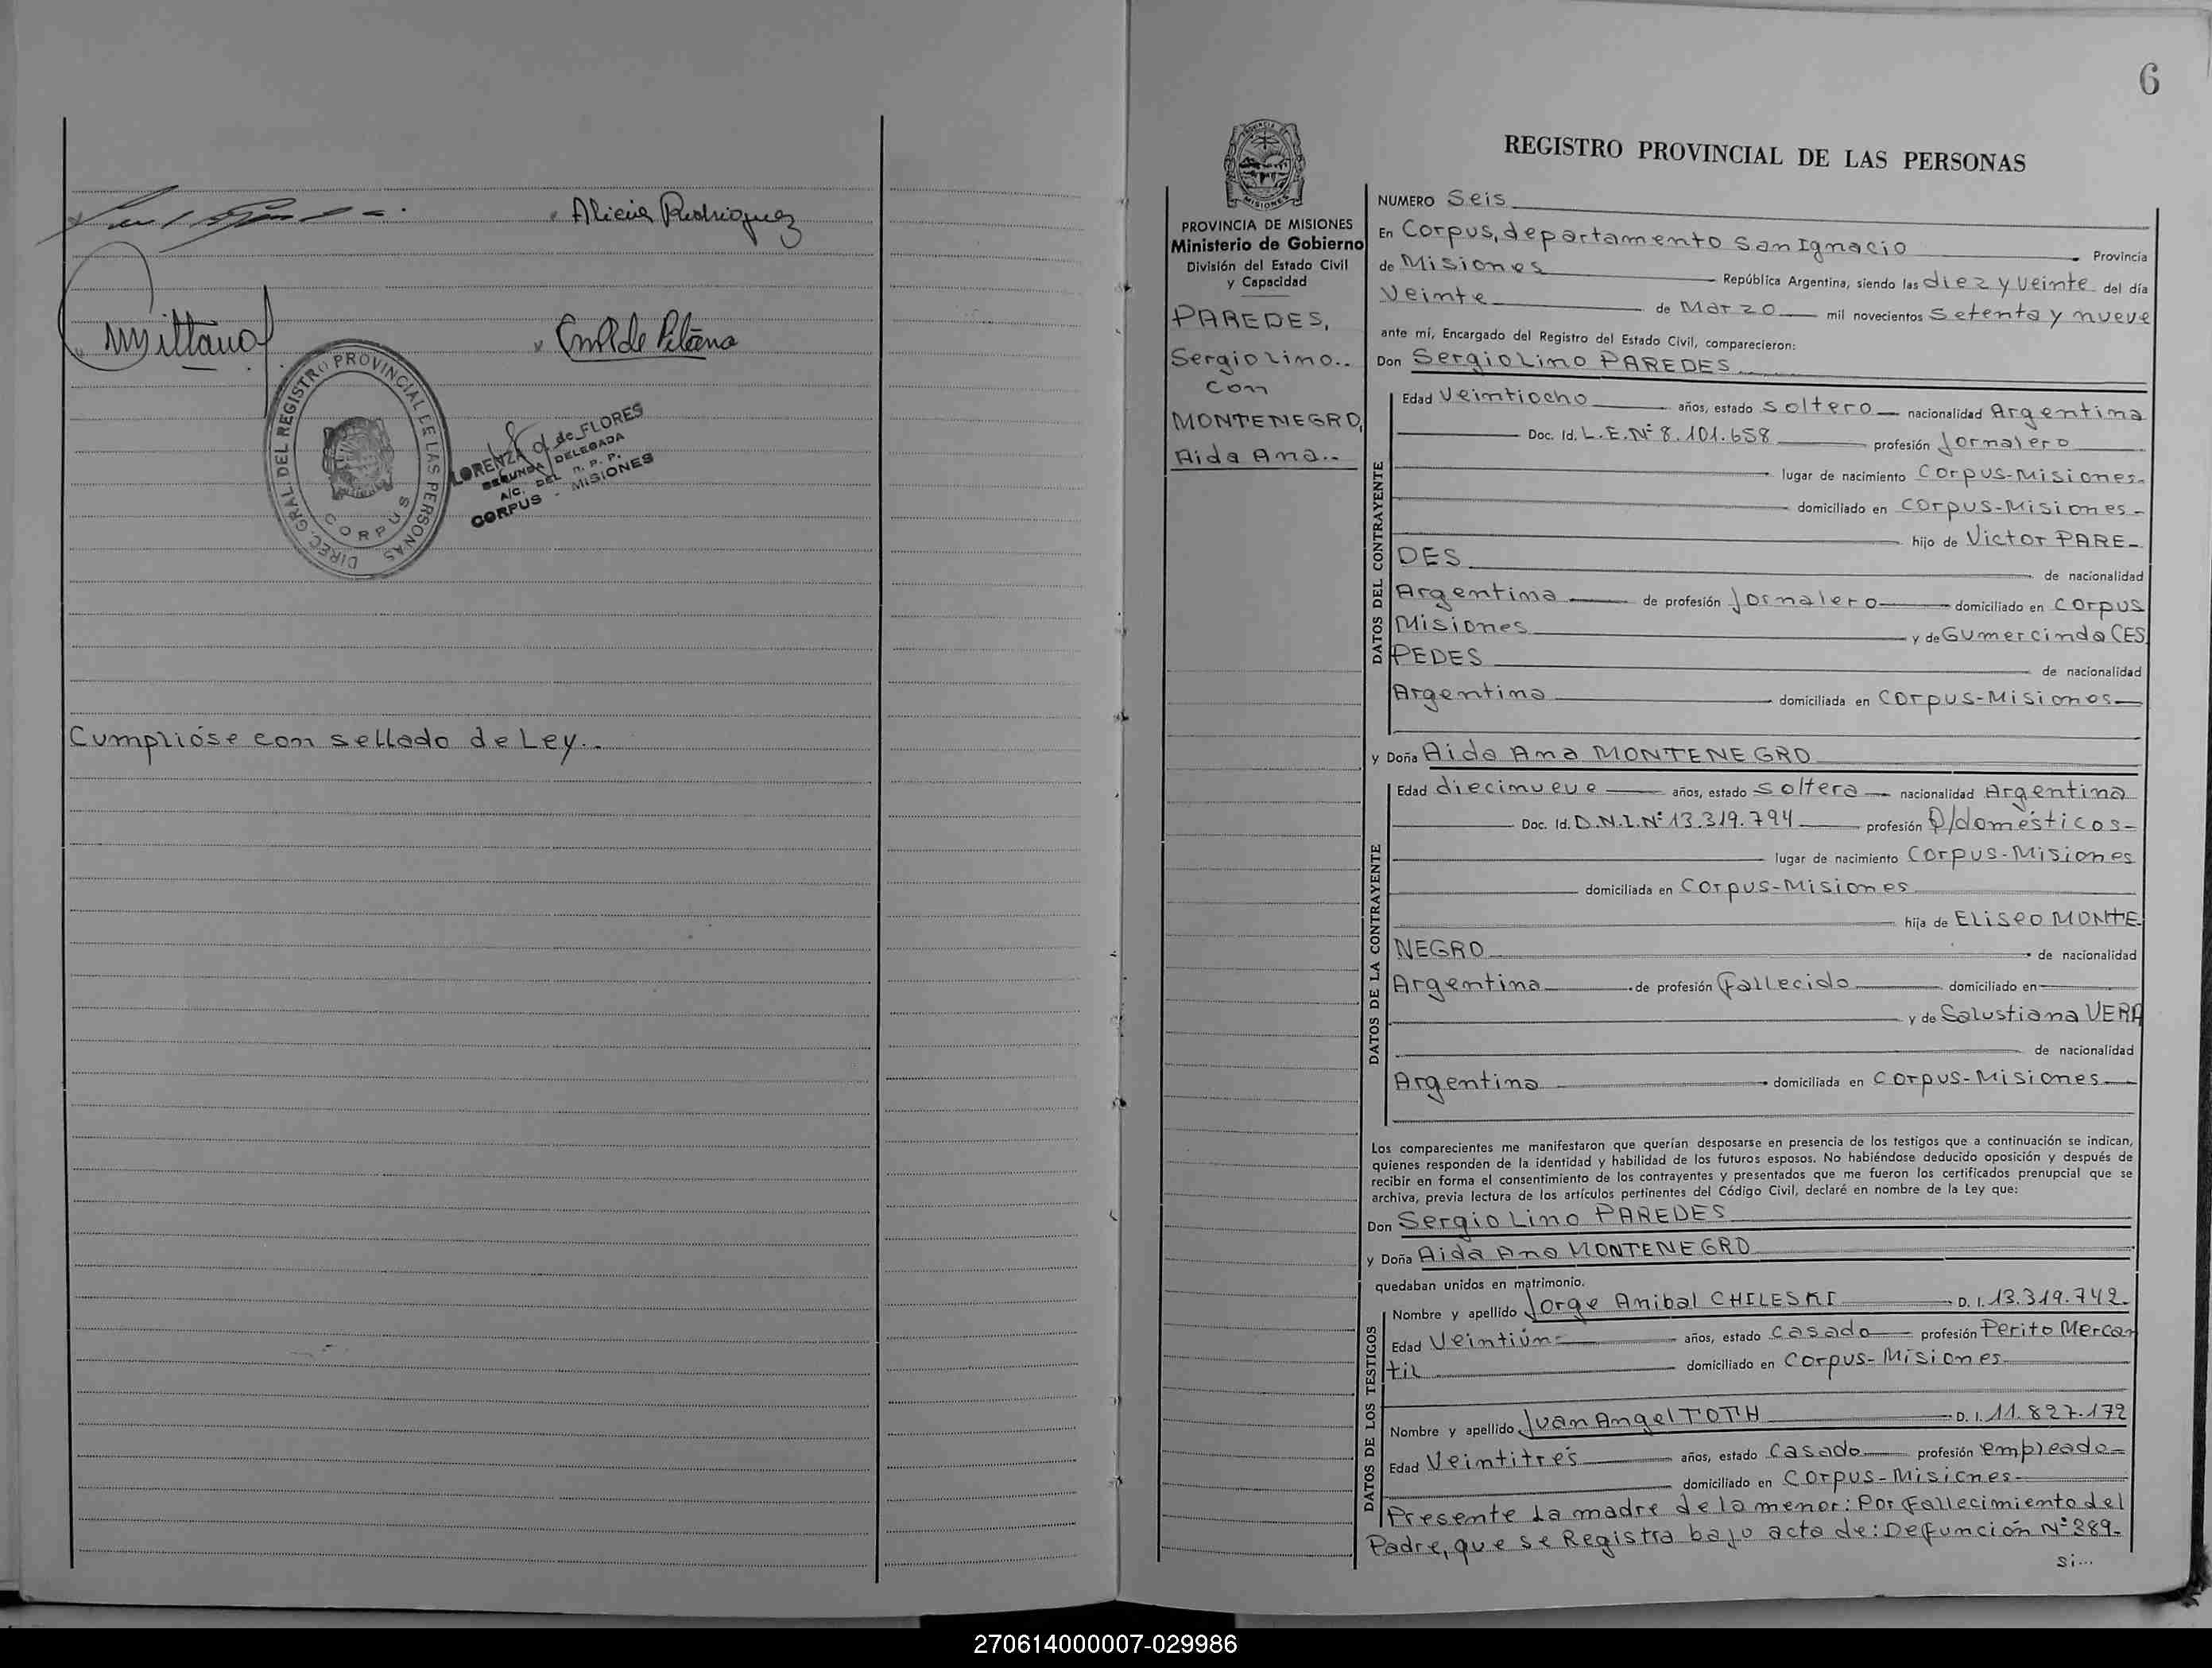 Alicia Rodriguez
DIREC. GRAL. DEL REGISTRO PROVINCIAL DE LAS PERSONAS
CORPUS
LORENZA de FLORES
SEGUNDA DELEGADA
A/C. DEL R. P. P.
CORPUS - MISIONES
Cumplióse con sellado de Ley..
6
PROVINCIA DE MISIONES
Ministerio de Gobierno
División del Estado Civil
y Capacidad
PAREDES,
Sergio Lino..
con
MONTENEGRO,
Aida Ana..
REGISTRO PROVINCIAL DE LAS PERSONAS
NUMERO Seis
En Corpus, departamento San Ignacio Provincia
de Misiones República Argentina, siendo las diez y veinte del día
Veinte de Marzo mil novecientos setenta y nueve
ante mí, Encargado del Registro del Estado Civil, comparecieron:
Don Sergio Lino PAREDES
DATOS DEL CONTRAYENTE
Edad Veintiocho años, estado soltero nacionalidad Argentina
Doc. Id. L.E.Nº 8.101.658 profesión Jornalero
lugar de nacimiento Corpus-Misiones-
domiciliado en Corpus-Misiones-
hijo de Victor PARE-
DES de nacionalidad
Argentina de profesión Jornalero domiciliado en Corpus
Misiones y de Gumercinda CES
PEDES de nacionalidad
Argentina domiciliada en Corpus-Misiones
y Doña Aida Ana MONTENEGRO
DATOS DE LA CONTRAYENTE
Edad diecinueve años, estado soltera nacionalidad Argentina
Doc. Id. D.N.I.Nº 13.319.794 profesión Q/domésticos-
lugar de nacimiento Corpus-Misiones
domiciliada en Corpus-Misiones
hija de Eliseo MONTE
NEGRO de nacionalidad
Argentina de profesión fallecido domiciliado en
y de Salustiana VERA
de nacionalidad
Argentina domiciliada en Corpus-Misiones
Los comparecientes me manifestaron que querían desposarse en presencia de los testigos que a continuación se indican,
quienes responden de la identidad y habilidad de los futuros esposos. No habiéndose deducido oposición y después de
recibir en forma el consentimiento de los contrayentes y presentados que me fueron los certificados prenupcial que se
archiva, previa lectura de los artículos pertinentes del Código Civil, declaré en nombre de la Ley que:
Don Sergio Lino PAREDES
y Doña Aida Ana MONTENEGRO
quedaban unidos en matrimonio.
DATOS DE LOS TESTIGOS
Nombre y apellido Jorge Anibal CHILESKI D. I. 13.319.742.
Edad Veintiún- años, estado casado profesión Perito Mercan
til domiciliado en Corpus-Misiones
Nombre y apellido Juan Angel TOTH D. I. 11.827.172
Edad Veintitrés años, estado casado profesión empleado
domiciliado en Corpus-Misiones-
Presente la madre de la menor: Por fallecimiento del
Padre, que se Registra bajo acta de: Defunción Nº 289-
si...
270614000007-029986